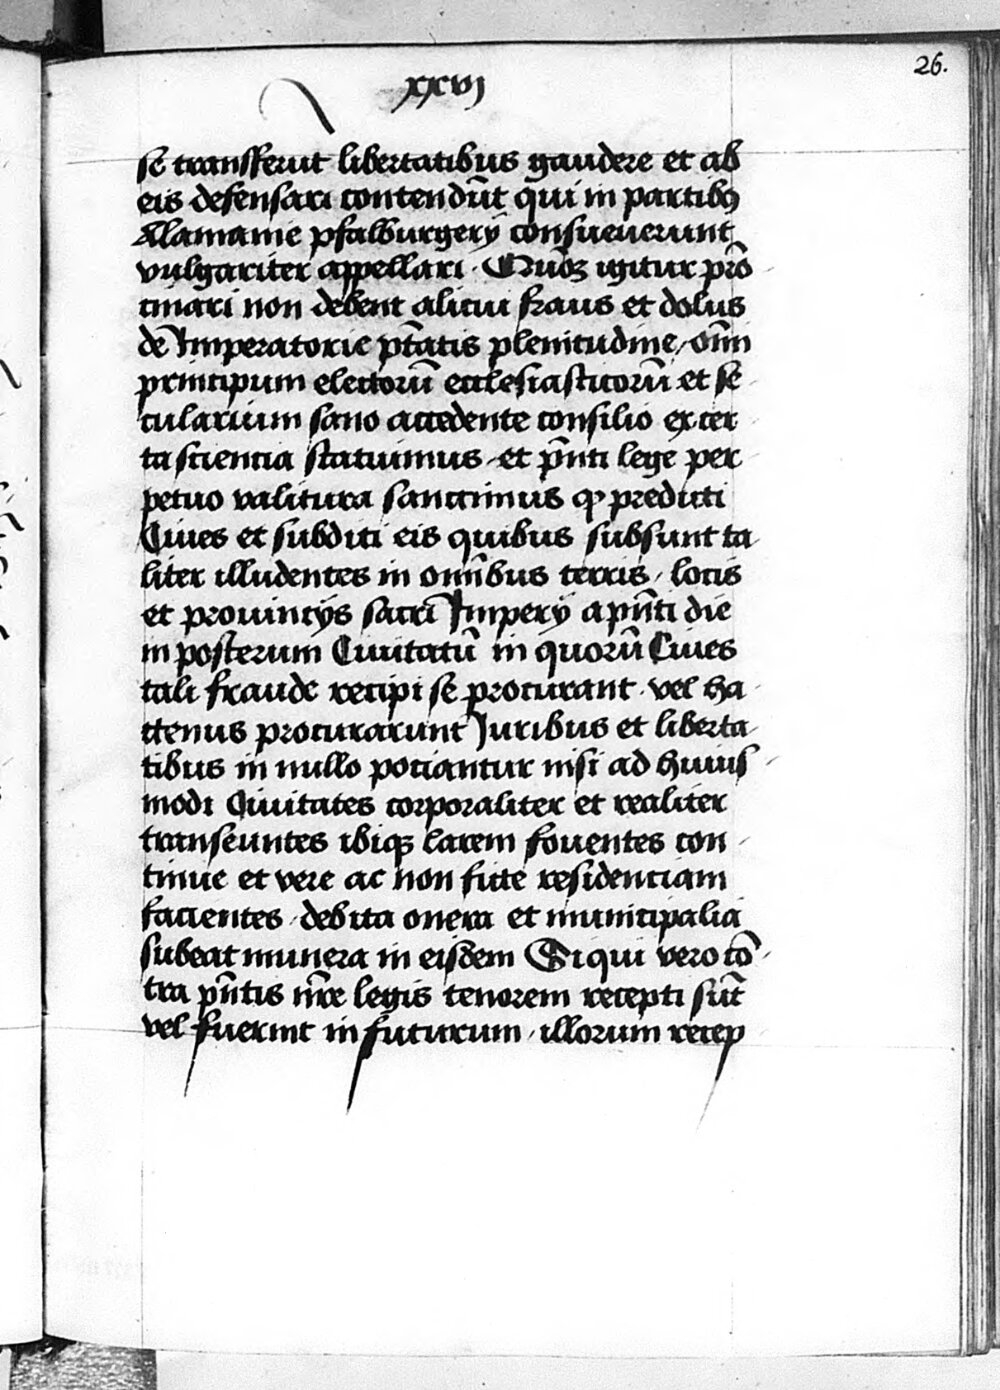 26.
xxvj
se transfferut libertatibus gaudere et ab
eis defensari contendūt qui in partibꝰ
Alamanie pfalburgerÿ consueuerunt
vulgariter appellari · Quōꝝ igitur prō
cinari non debent alicui fraus et dolus
dē Imperatorie ptātis plenitudine / oīm
principum electorū ecclesiasticorū et se
cularium sano accedente consilio ex cer
ta sciencia statuimus · et pn̄ti lege per
petuo valitura sanctimus ꝙ predicti
Ciues et subditi eis quibus subsunt ta
liter illudentes in om̄ibus terris / locis
et prouincÿs sacri Imperÿ a pn̄ti die
in posterum Ciuitatū in quorū Ciues
tali fraude recipi se procurant · vel ha
ctenus procurarunt Juribus et liberta
tibus in nullo pociantur nisi ad huius
modi Ciuitates corporaliter et realiter
transeuntes ibiqꝫ larem fouentes con
tinue et vere ac non ficte residenciam
facientes / debita onera et municipalia
subeat munera in eisdem Si qui vero cō
tra pn̄tis nr̄e legis tenorem recepti sūt
vel fuerint in futurum / illorum recep